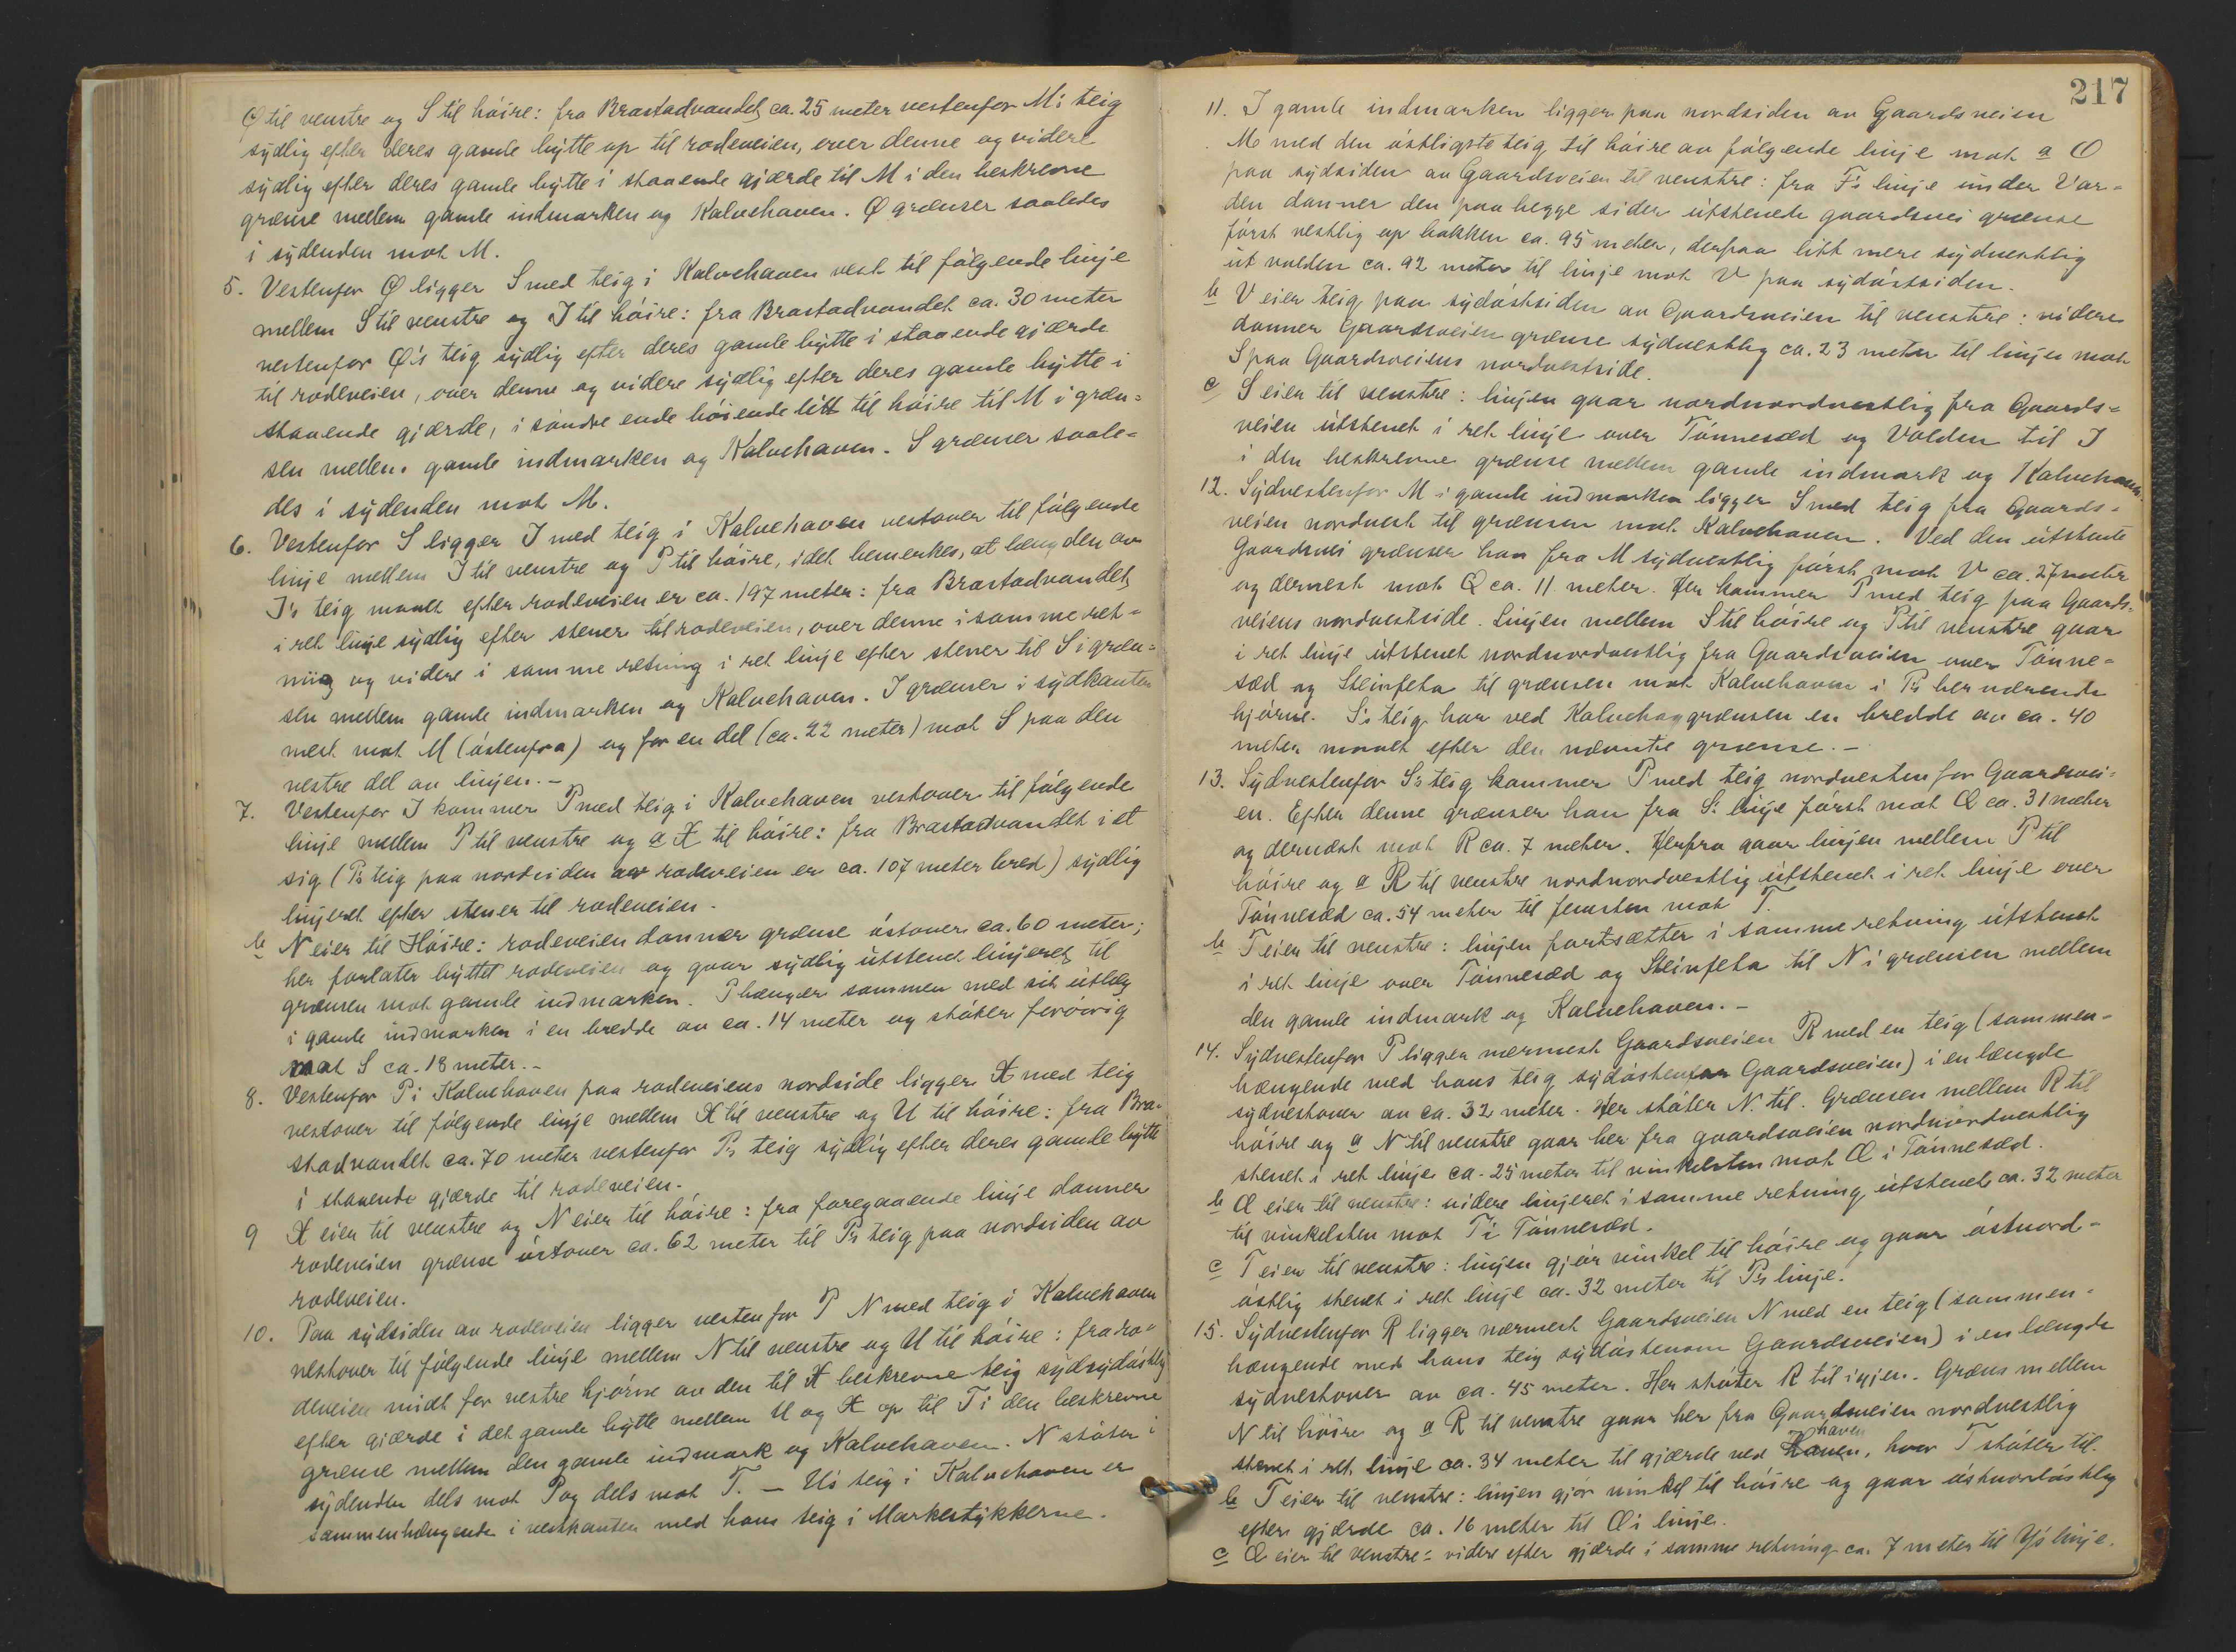 Q til venstre og S til høire: fra Brastadvandet ca. 25 meter vestenfor M's teig
sydlig efter deres gamle bytte op til rodeveien, over denne og videre
sydlig efter deres gamle bytte i staaende gjærde til M i den beskrevne
grænse mellem gamle indmarken og Kalvehaven. Q grænser saaledes
i sydenden mot M.
5. Vestenfor Q ligger S med teig i Kalvehaven vest til følgende linje
mellem S til venstre og I til høire: fra Brastadvandet ca. 30 meter
vestenfor Q's teig sydlig efter deres gamle bytte i staaende gjærde
til rodeveien, over denne og videre sydlig efter deres gamle bytte i
staaende gjærde, i søndre ende bøiende litt til høire til M i græn-
sen mellem gamle indmarken og Kalvehaven. S grænser saale-
des i sydenden mot M.
6. Vestenfor S ligger I med teig i Kalvehaven vestover til følgende
linje mellem I til venstre og P til høire, idet bemerkes, at længden av
I's teig maalt efter rodeveien er ca. 197 meter: fra Brastadvandet
i ret linje sydlig efter stener til rodeveien, over denne i samme ret-
ning og videre i samme retning i ret linje efter stener til S i græn-
sen mellem gamle indmarken og Kalvehaven. I grænser i sydkanten
mest mot M (østenfra) og for en del (ca. 22 meter) mot S paa den
vestre del av linjen. -
7. Vestenfor I kommer P med teig i Kalvehaven vestover til følgende
linje mellem P til venstre og a X til høire: fra Brastadvandet i et
sig (P's teig paa nordsiden av rodeveien er ca. 107 meter bred) sydlig
linjeret efter stener til rodeveien.
b N eier til Høire: rodeveien danner grænse østover ca. 60 meter;
her forlater byttet rodeveien og gaar sydlig utstenet linjeret til
grænsen mot gamle indmarken. P hænger sammen med sit utlæg
i gamle indmarken i en bredde av ca. 14 meter og støter forøvrig
mot S ca. 18 meter. -
8. Vestenfor P i Kalvehaven paa rodeveiens nordside ligger X med teig
vestover til følgende linje mellem X til venstre og U til høire: fra Bra-
stadvandet ca. 70 meter vestenfor P's teig sydlig efter deres gamle bytte
i staaende gjærde til rodeveien.
9 X eier til venstre og N eier til høire: fra foregaaende linje danner
rodeveien grænse østover ca. 62 meter til P's teig paa nordsiden av
rodeveien.
10. Paa sydsiden av rodeveien ligger vestenfor P N med teig i Kalvehaven
vestover til følgende linje mellem N til venstre og U til høire: fra ro-
deveien midt for vestre hjørne av den til X beskrevne teig sydsydøstlig
efter gjærde i det gamle bytte mellem U og X op til T i den beskrevne
grænse mellem den gamle indmark og Kalvehaven. N støter i
sydenden dels mot P og dels mot T. - U's teig i Kalvehaven er
sammenhængende i vestkanten med hans teig i Markestykkerne.
217
11. I gamle indmarken ligger paa nordsiden av Gaardsveien
M med den østligste teig til høire av følgende linje mot a O
paa sydsiden av Gaardsveien til venstre: fra F's linje under Var-
den danner den paa begge sider utstenede gaardsvei grænse
først vestlig op bakken ca. 95 meter, derpaa litt mere sydvestlig
ut volden ca. 92 meter til linje mot V paa sydøstsiden.
b V eier teig paa sydøstsiden av Gaardsveien til venstre: videre
danner Gaardsveien grænse sydvestlig ca. 23 meter til linjen mot
S paa Gaardsveiens nordvestside.
c S eier til venstre: linjen gaar nordnordvestlig fra Gaards-
veien utstenet i ret linje over Tønnesæd og Volden til I
i den beskrevne grænse mellem gamle indmark og Kalvehaven.
12. Sydvestenfor M i gamle indmarken ligger S med teig fra Gaards-
veien nordvest til grænsen mot Kalvehaven. Ved den utstenede
Gaardsvei grænser han fra M sydvestlig først mot V ca. 27 meter
og dernest mot Q ca. 11 meter. Her kommer P med teig paa Gaards-
veiens nordvestside. Linjen mellem S til høire og P til venstre gaar
i ret linje utstenet nordnordvestlig fra Gaardsveien over Tønne-
sæd og Steinfeta til grænsen mot Kalvehaven i P's herværende
hjørne. S's teig har ved Kalvehaggrænsen en bredde av ca. 40
meter maalt efter den nævnte grænse. -
13. Sydvestenfor S's teig kommer P med teig nordvestenfor Gaardsvei-
en. Efter denne grænser han fra S's linje først mot Q ca. 31 meter
og dernæst mot R ca. 7 meter. Herfra gaar linjen mellem P til
høire og a R til venstre nordnordvestlig utstenet i ret linje over
Tønnesæd ca. 54 meter til femsten mot T.
b T eier til venstre: linjen fortsætter i samme retning utstenet
i ret linje over Tønnesæd og Steinfeta til N i grænsen mellem
den gamle indmark og Kalvehaven. -
14. Sydvestenfor P ligger nærmest Gaardsveien R med en teig (sammen-
hængende med hans teig sydøstenfor Gaardsveien) i en længde
sydvestover av ca. 32 meter. Her støter N. til. Grænsen mellem R til
høire og a N til venstre gaar her fra gaardsveien nordnordvestlig
stenet i ret linje ca. 25 meter til vinkelsten mot Q i Tønnesæd.
b Q eier til venstre: videre linjeret i samme retning utstenet ca. 32 meter
til vinkelsten mot T i Tønnesæd.
c T eier til venstre: linjen gjør vinkel til høire og gaar østnord-
østlig stenet i ret linje ca. 32 meter til P's linje.
15. Sydvestenfor R ligger nærmest Gaardsveien N med en teig (sammen-
hængende med hans teig sydøstenom Gaardsveien) i en længde
sydvestover av ca. 45 meter. Her støter R til igjen. Græns mellem
N til høire og a R til venstre gaar her fra Gaardsveien nordvestlig
haven
stenet i ret linje ca. 34 meter til gjærde ved Haven, hvor T støter til.
b T eier til venstre: linjen gjør vinkel til høire og gaar østnordøstlig
efter gjærde ca. 16 meter til Q's linje.
c Q eier til venstre: videre efter gjærde i samme retning ca. 7 meter til linje.